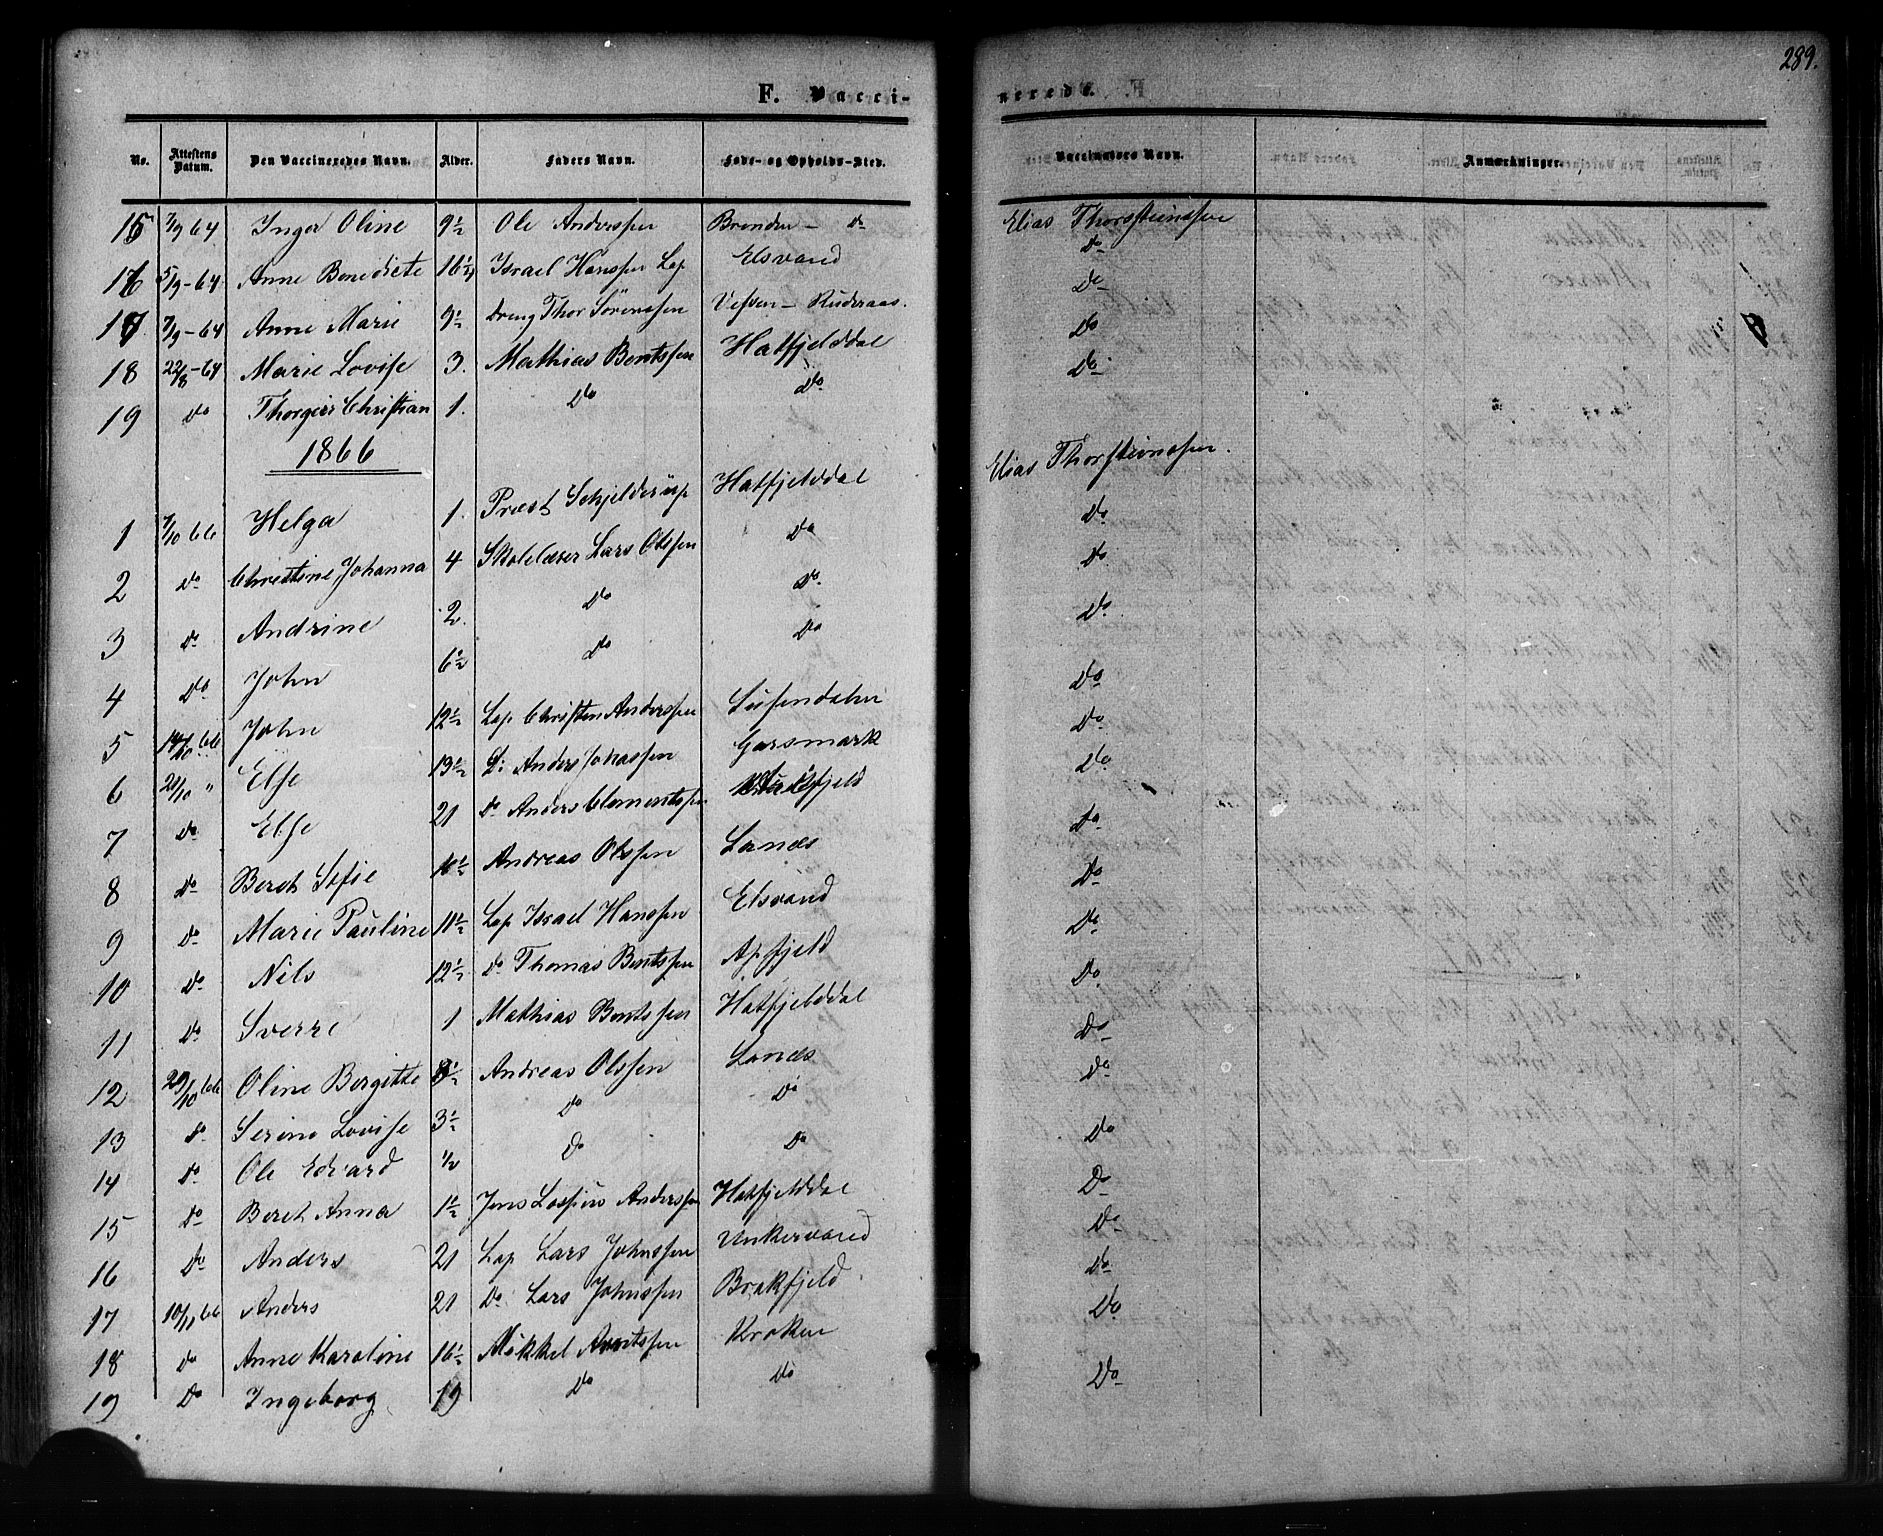 289.
F. Vacci-
nerede.
No. Attestens Datum. Den Vaccineredes Navn. Alder. Faders Navn. Føde- og Opholds-Sted. Vaccinators Navn. Anmærkninger.
15 7/9 64 Inger Oline 9½ Ole Anderssen Brenden - Do Elias Thorsteinssen
16 5/9-64 Anne Benedicte Israel Hanssen Lap Elsvand Do
17 7/9-64 Anne Marie 9½ Dreng Thor Sørenssen Vefsen - Do
18 22/8-64 Marie Lovise 3. Mathias Bentssen Hatfjelddal Do
19 Do Thorgier Christian 1. Do Do Do
1866
1 7/10 66 Helga 1. Præst Schjelderup Hatfjelddal Elias Thorsteinssen.
2 Do Christine Johanna 4 Skolelærer Lars Olssen Do Do
3 Do Andrine 2. Do Do Do
4 Do John 6½ Do Do Do
5 14/10 66 John 12½ Lap Christen Anderssen Susendalen Do
6 20/10 " Else 13½ D: Anders Johanssen Garsmark Do
7 Do Else 21 Do Anders Clementssen Do
8 Do Beret Sofie 10½ Andreas Olssen Lanæs Do
9 Do Marie Pauline 10½ Lap Israel Hanssen Elsvand Do
10 Do Nils 12½ Do Thomas Bentssen Apfjeld Do
11 Do Sverre 1 Mathias Bentssen Hatfjelddal Do
12 20/10 66 Oline Bergitte 8½ Andreas Olssen Lanæs Do
13 Do Serine Lovise 3½ Do Do Do
14 Do Ole Edvard 1/2 Do Do Do
15 Do Beret Anna 1½ Jens Anderssen Hatfjelddal Do
16 Do Anders 21 Lap Lars Johnssen Unkervand Do
17 10/11 66 Anders 21 Do Lars Johnssen Brakfjeld Do
18 Do Anne Karoline 16½ Mikkel Arntssen Kroken Do
19 Do Ingeborg 19 Do Do Do